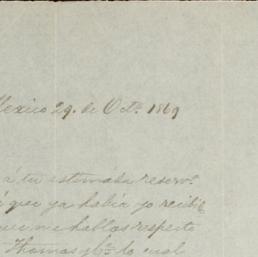 Mexico 29. de Oct.e 1869
á tu estimada reserv.
que ya habia yo recibi
que me hablas respecto
Thomas lo cual